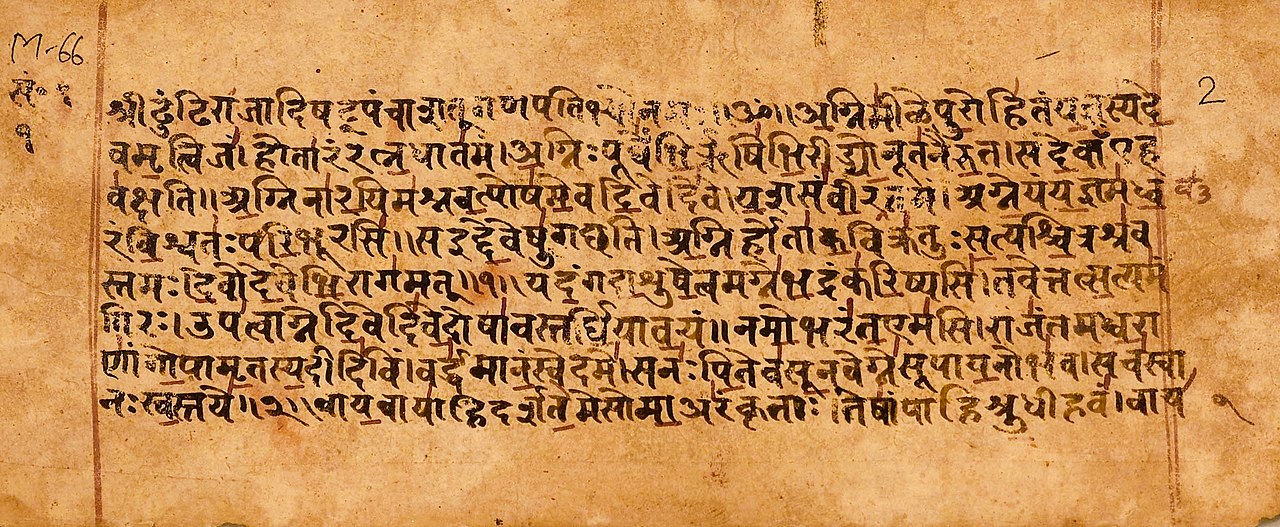 M-66
2
१
श्रीढुंढिराजादिषट्पंचाशत् गणपतिभ्यो नमः॥ॐ॥अग्निमीळेपुरोहितंयज्ञस्यदे
वमृत्विजं।होतारंरत्नधातमं।अग्निःपूर्वेभिर्ऋषिभिरीड्योनूतनैरुत।सदेवाँएह
वक्षति॥अग्निनारयिमश्नवत्पोषमेवदिवेदिवे।यशसंवीरवत्तमं।अग्नेयंयज्ञमध्व
रंविश्वतःपरिभूरसि॥सइद्देवेषुगछति।अग्निर्होताकविक्रतुःसत्यश्चित्रश्रव
स्तमः।देवोदेवेभिरागमत्॥१॥यदंगदाशुषेत्वमग्नेभद्रंकरिष्यसि।तवेत्तत्सत्यमं
गिरः।उपत्वाग्नेदिवेदिवेदोषावस्तर्धियावयं॥नमोभरंतएमसि।राजंतमध्वरा
णांगोपामृतस्यदीदिविं।वर्द्धमानंस्वेदमे।सनःपितेवसूनवेग्नेसूपायनोभव।सचस्वा
नःस्वस्तये॥२॥वायवायाहिदर्शतेमेसोमाअरंकृताः।तेषांपाहिश्रुधीहवं।वाय